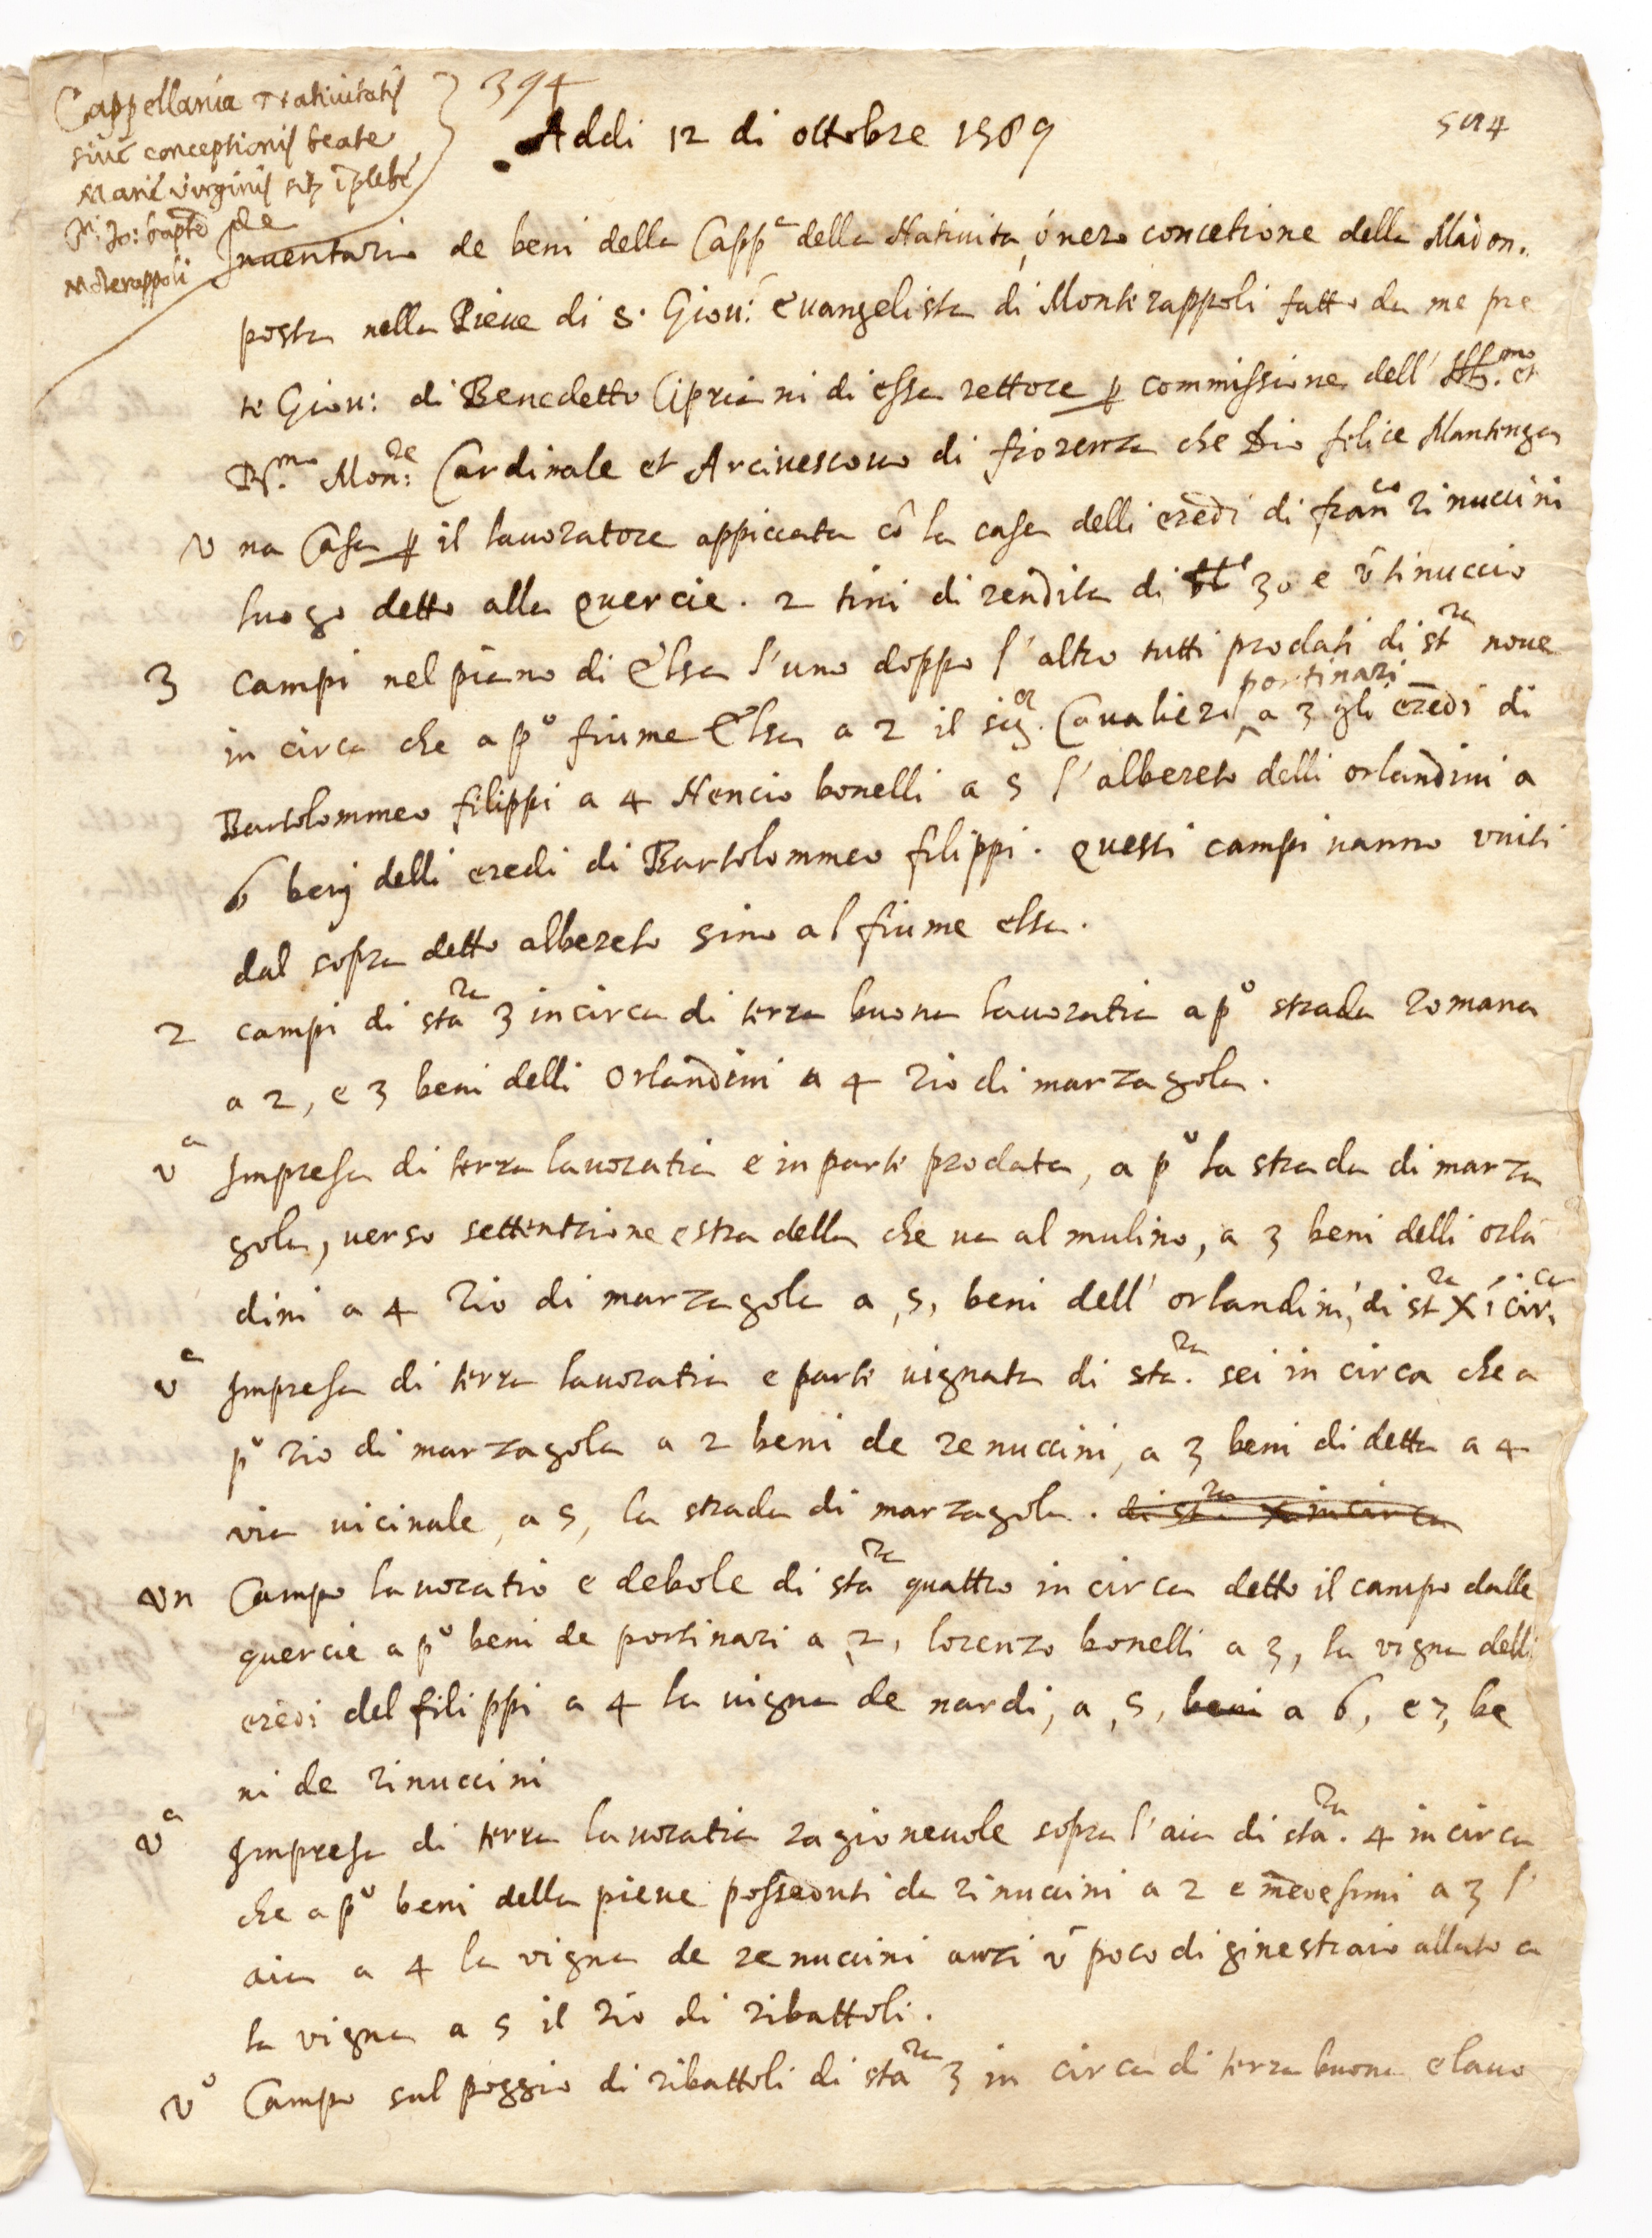 Cappellania Nativitatis
sive conceptionis beate
Marie virginis sit. ī plebe
S. Jo: bapte de
Mōterappoli
394
Addi 12 di ottobre 1589
594
Inventario de beni della Capp.a della Natività, ò vero concetione della Madon.
posta nella Pieve di S. Giov: Evangelista di Monterappoli fatto da me pre
te Giov: di Benedetto Cipriani di essa rettore p commissione dell' Ill.mo et
R.mo Mon:re Cardinale et Arcivescovo di fiorenza che Dio felice Mantenga
V na Casa p il lavoratore appiccata cō la casa delli eredi di fran.co rinuccini
luogo detto alla quercie. 2 tini di rendita di 30 e ū tinuccio
3 campi nel piano di Elsa l'uno doppo l'altro tutti prodati di st.ra nove
in circa che a p.o fiume Elsa a 2 il sig.or Cavalieri portinari a 3 gli eredi di
Bartolommeo filippi a 4 Nencio bonelli a 5 l'albereto delli orlandini a
6 beni delli eredi di Bartolommeo filippi. questi campi vanno uniti
dal sopra detto albereto sino al fiume elsa.
2 campi di sta.ra 3 in circa di terra buona lavoratia a p.o strada romana
a 2, e 3 beni delli Orlandini a 4 rio di marzagola.
v.a Impresa di terra lavoratia e in parte prodata, a p.o la strada di marza
gola, verso settentrione e stradella che va al mulino, a 3 beni delli orlā
dini a 4 rio di marzagola a, 5, beni dell' orlandini, di st.ra X ī cir.ca
v.a Impresa di terra lavoratia e parte vignata di sta.ra sei in circa che a
p.o rio di marzagola a 2 beni de renuccini, a 3 beni di detta a 4
via vicinale, a 5, la strada di marzagola. di st.ra X in circa
vn Campo lavoratio e debole di sta.ra quattro in circa detto il campo dalle
quercie a p.o beni de portinari a 2, lorenzo bonelli a 3, la vigna delli
eredi del filippi a 4 la vigna de nardi, a, 5, beni a 6, e 7, be
ni de rinuccini
v.a Impresa di terra lavoratia ragionevole sopra l'aia di sta.ra 4 in circa
che a p.o beni della pieve posseduti da rinuccini a 2 e medesimi a 3 l'
aia a 4 la vigna de renuccini anzi ū poco di ginestraio allato a
la vigna a 5 il rio di ribattoli.
v.o Campo sul poggio di ribattoli di sta.ra 3 in circa di terra buona e lavo